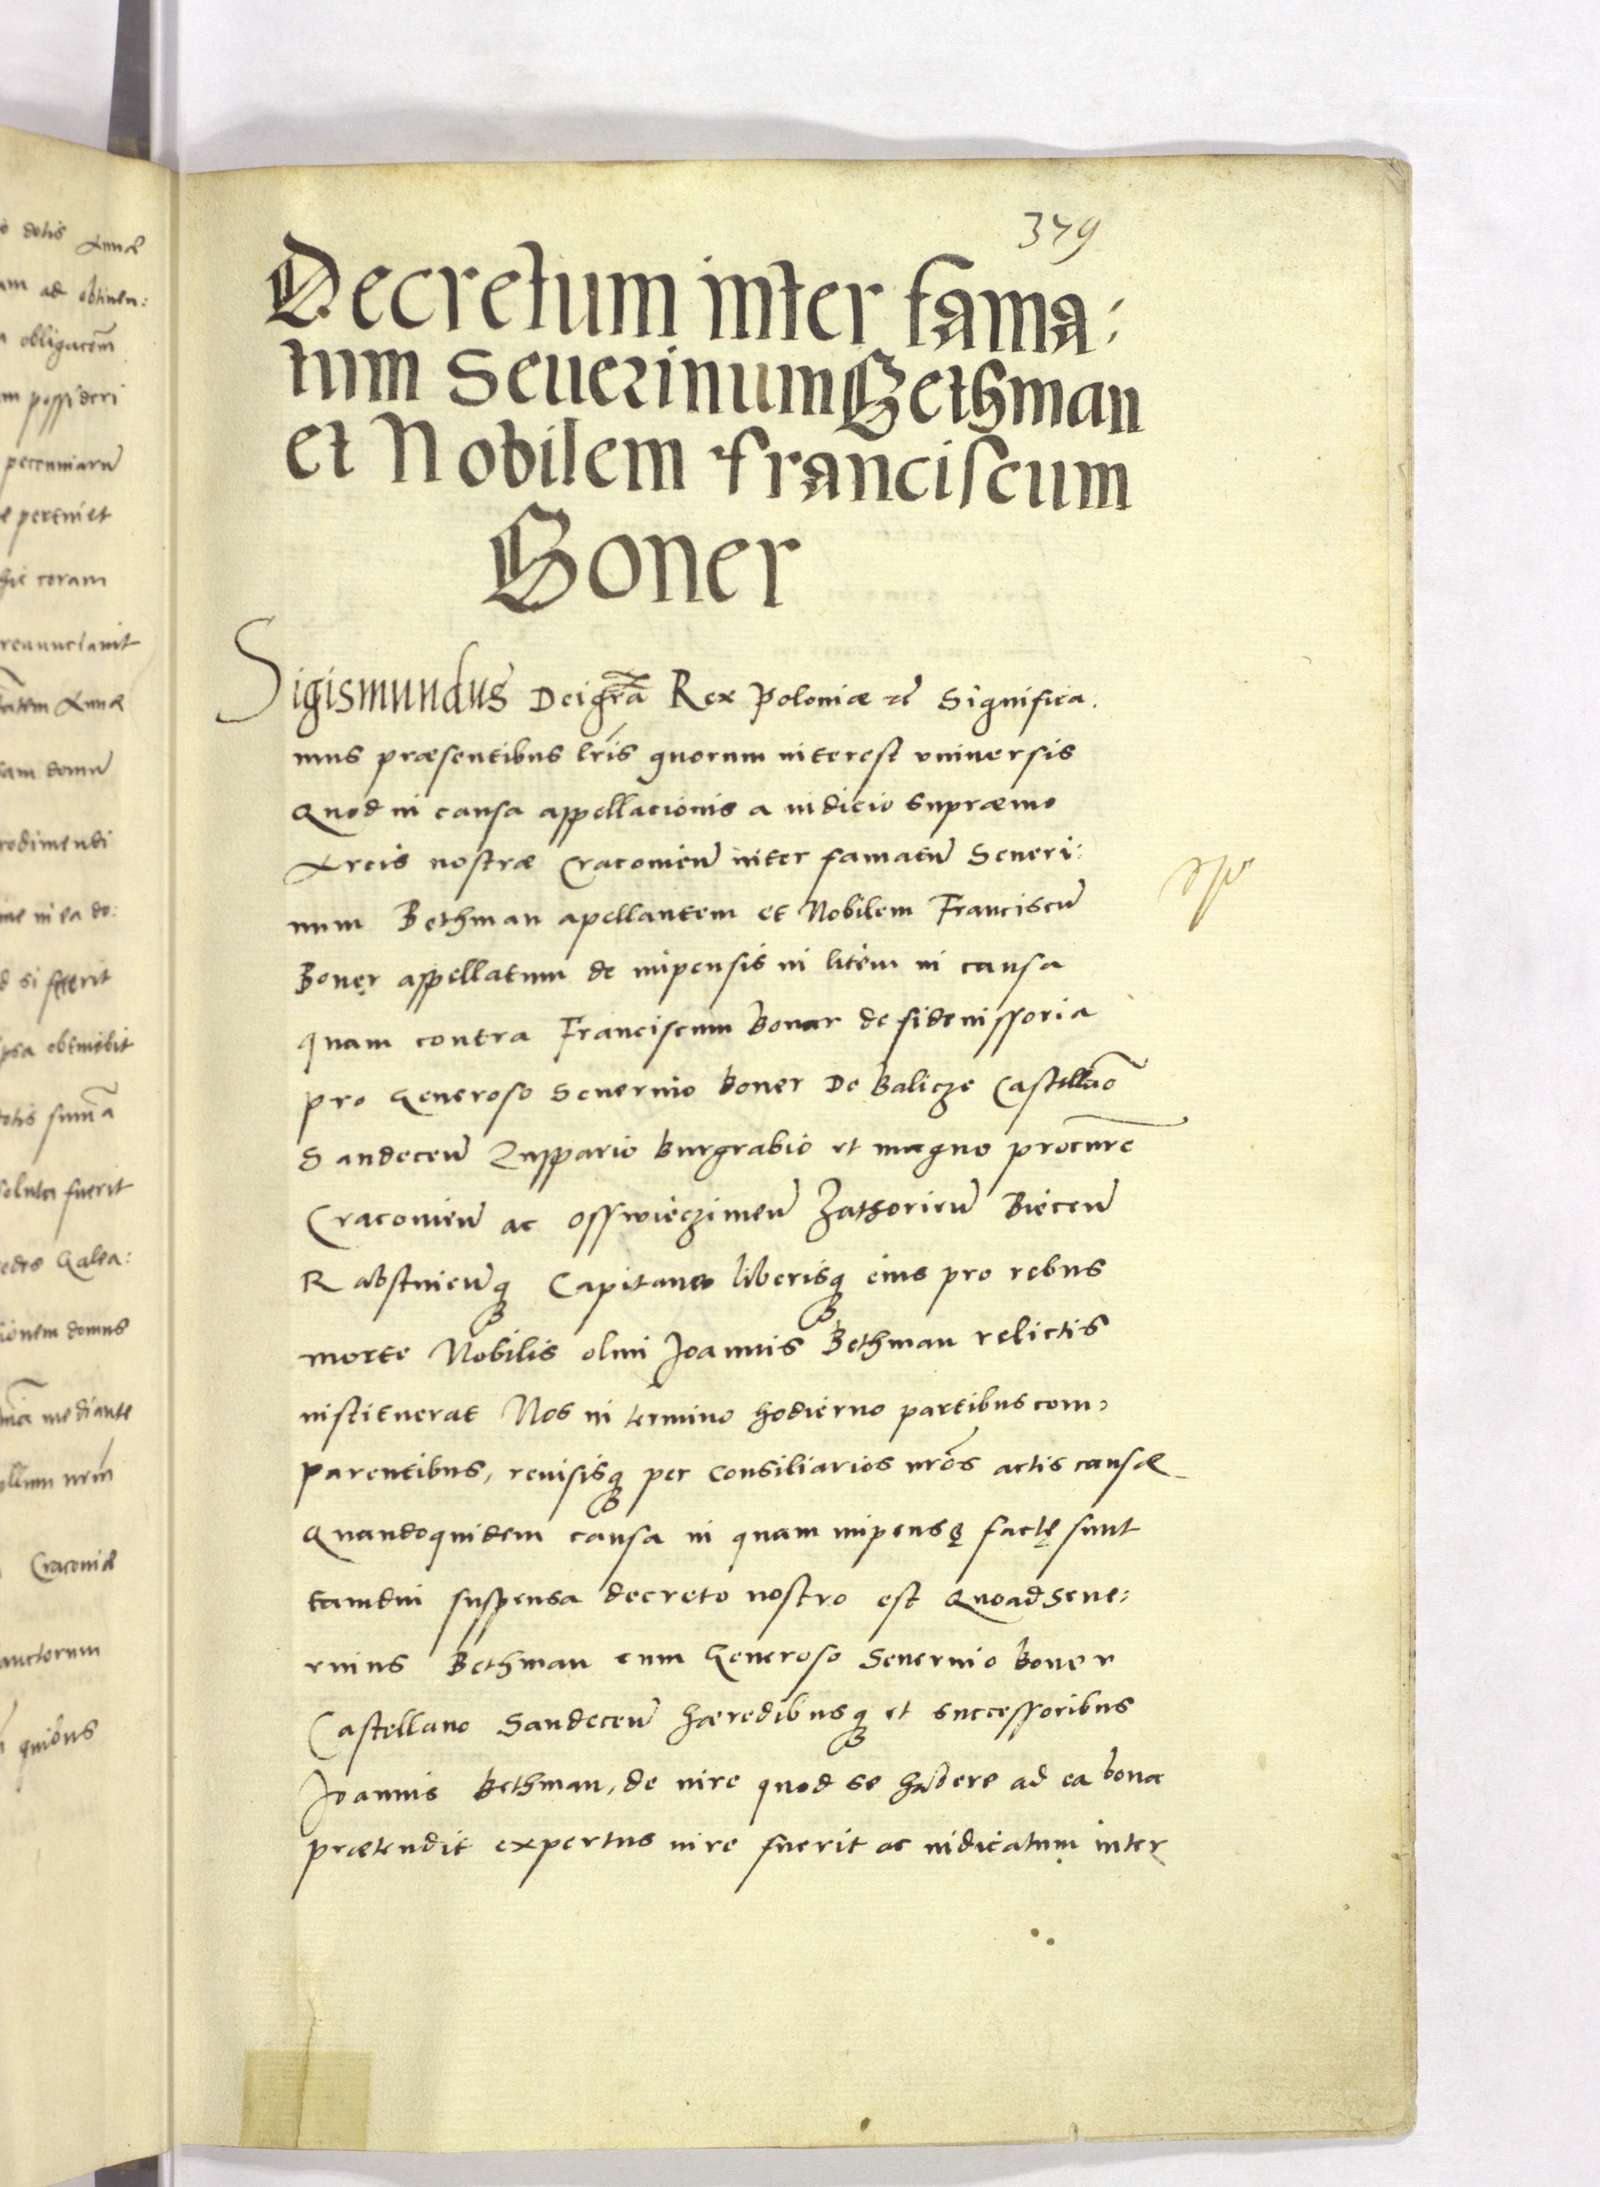 379
Decretum inter fama:
tum Seuerinum Bethman
et Nobilem Franciscum
Boner
Sigismundus Dei gra Rex Poloniæ etc Significa.
mus præsentibus lris quorum interest vniuersis
Quod in causa appellacionis a iudicio supræmo
Arcis nostræ Cracouien inter famatu Seueri:
num Bethman apellantem et Nobilem Franciscu
Boner appellatum de impensis in litem in causa
quam contra Franciscum Bonar de fideiussoria
pro Generoso Seuerino Boner De Balicze Castellao
Sandecen Zuppario Burgrabio et magno procure
Cracouien ac Osswieczimen Zathorien Biecen
Rabstinenq Capitaneo liberisq eius pro rebus
morte Nobilis olim Joannis Bethman relictis
instituerat Nos in termino hodierno partibus com,
parentibus, reuisisq per Consiliarios nros actis causæ
Quandoquidem causa in quam impensę factę sunt
tamdiu suspensa decreto nostro est Quoad Seue:
rinus Bethman cum Generoso Seuerino Boner
Castellano Sandecen hæredibusq et successoribus
Joannis Bethman, de iure quod se habere ad ea bona
prætendit expertus iure fuerit ac iudicatum inter
dotis Annæ
ad obtinen:
obligacom
possideri
pecuniaru
peruniet
coram
renunciauit
Annæ
domu
in ea do:
si fuerit
obtinebit
dotis suma
soluta fuerit
Galea:
domus
mediante
nrm
Cracouiæ
quibus